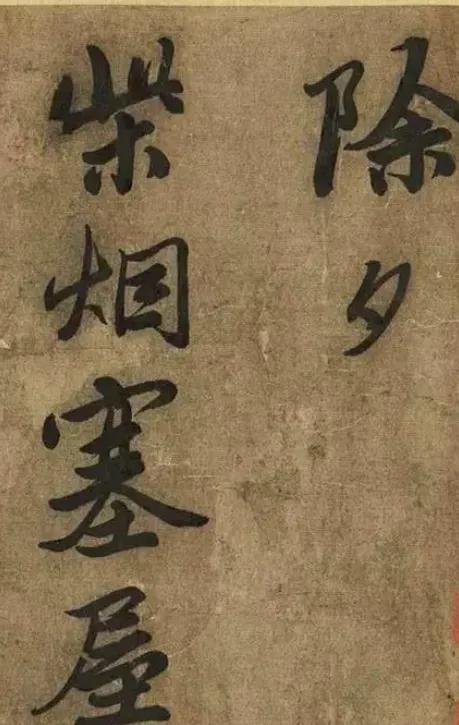 除夕
柴烟塞屋